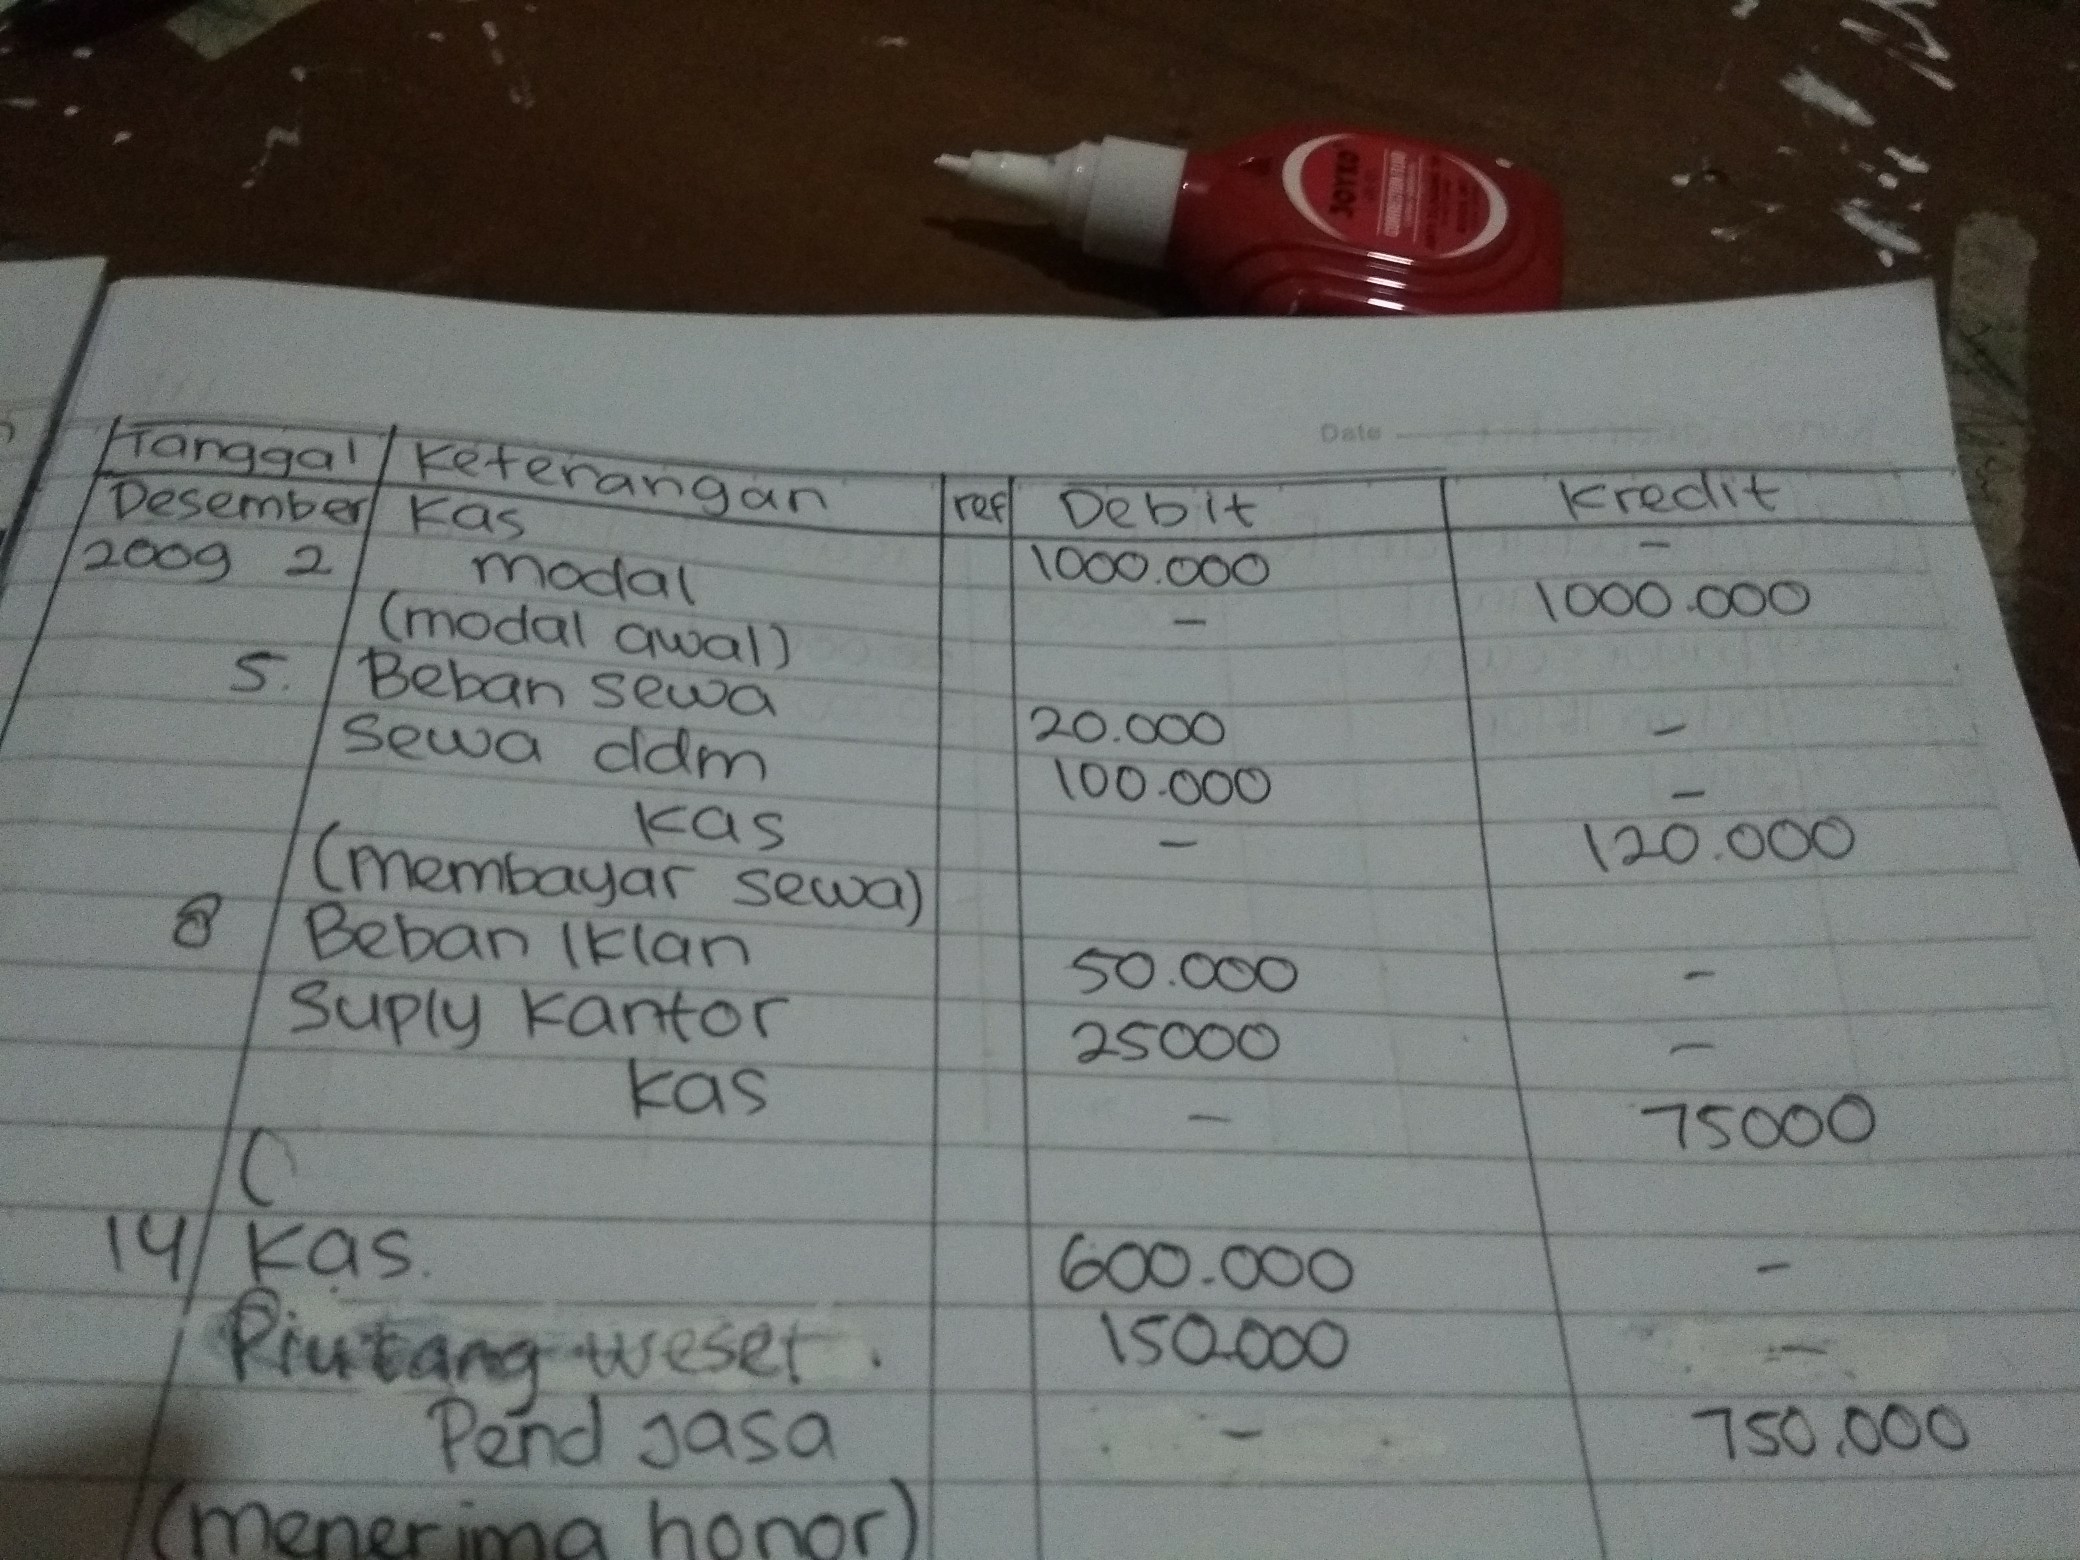 JOYKO
CORRECTION FLUID
Date
Tanggal Keterangan ref Debit Kredit
Desember Kas 1000.000 -
2009 2 modal - 1000.000
(modal awal)
5. Beban sewa 20.000 -
Sewa ddm 100.000 -
Kas - 120.000
(membayar sewa)
8 Beban Iklan 50.000 -
Suply Kantor 25000 -
Kas - 75000
(
14 Kas. 600.000 -
Piutang wesel. 150.000 -
Pend Jasa - 750.000
(menerima honor)